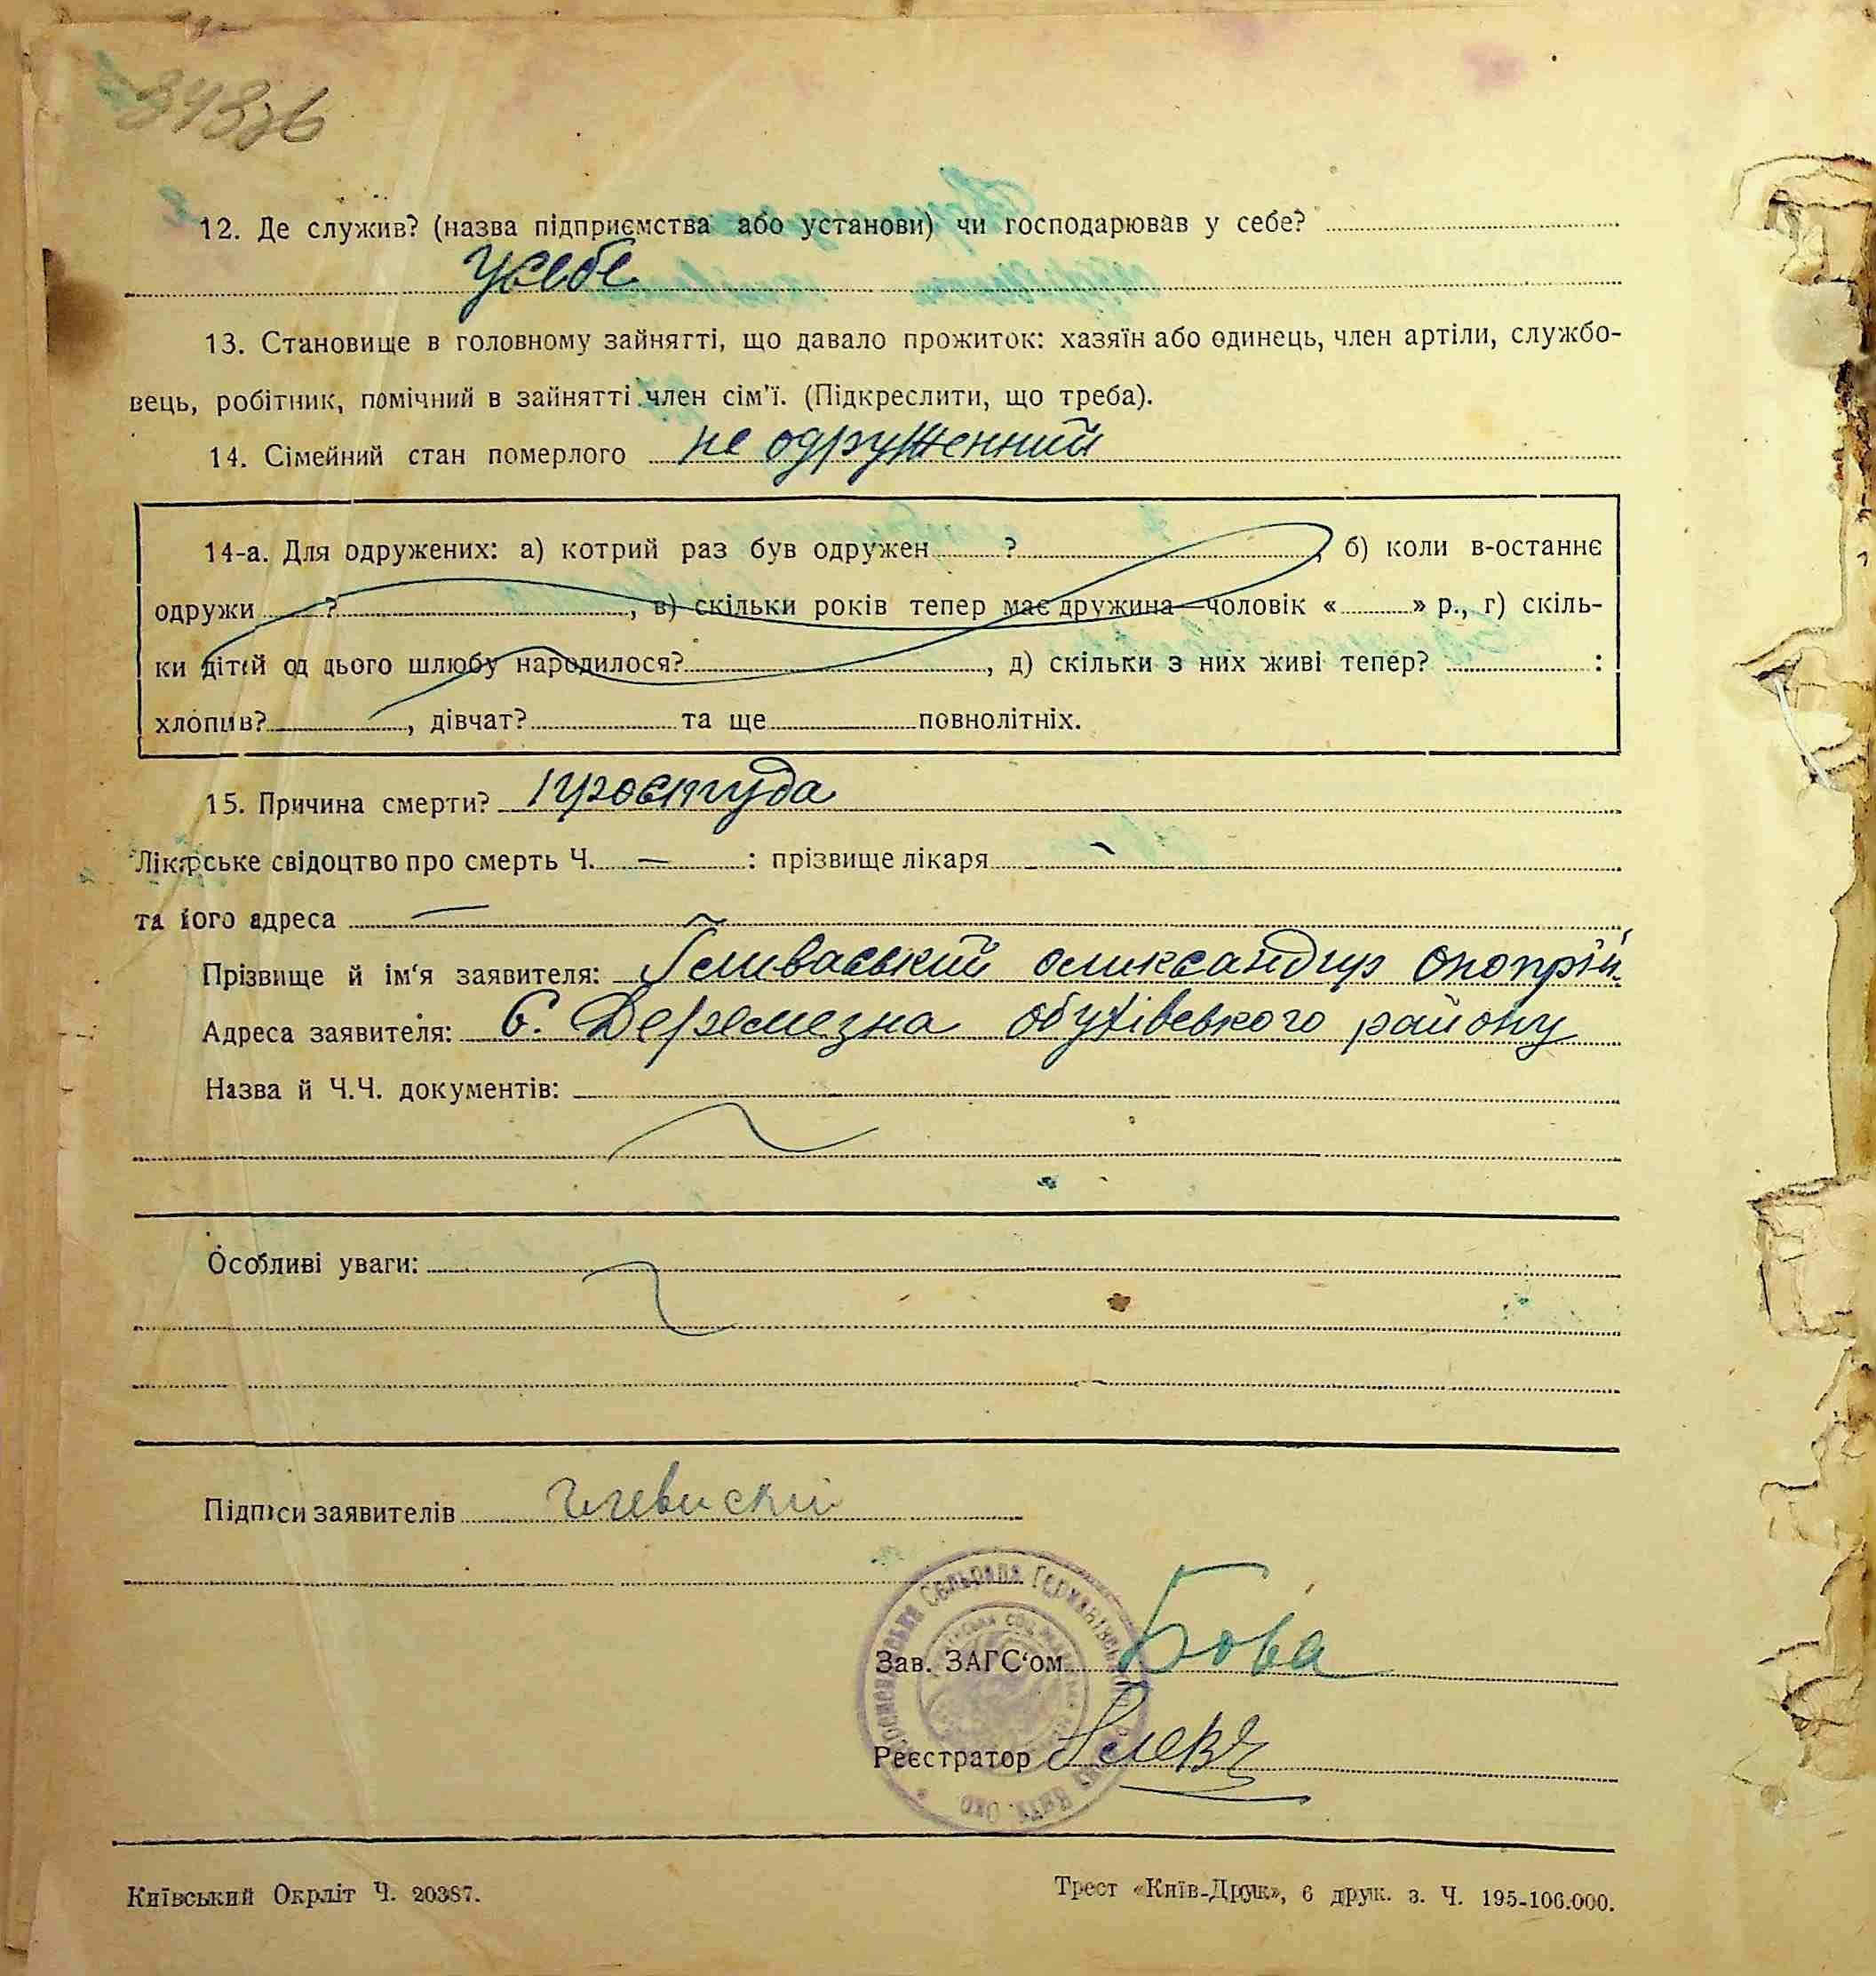 12. Де служив? (назва підприємства або установи) чи господарював у себе?
усебе
13. Становище в головному зайнятті, що давало прожиток: хазяїн або одинець, член артіли, службо-
вець, робітник, помічний в зайнятті член сім'ї. (Підкреслити, що треба).
14. Сімейний стан померлого не одруженний
14-а. Для одружених: а) котрий раз був одружен ? , б) коли в-останнє
одружи ? , в) скільки років тепер має дружина—чоловік « » р., г) скіль-
ки дітей од цього шлюбу народилося? , д) скільки з них живі тепер? :
хлопців? , дівчат? та ще повнолітніх.
15. Причина смерти? простуда
Лікарське свідоцтво про смерть Ч. — : прізвище лікаря
та його адреса —
Прізвище й ім'я заявителя:
Адреса заявителя: С. Деремезна обухівського району
Назва й Ч.Ч. документів:
Особливі уваги:
Підписи заявителів
Сельрада
Зав. ЗАГС'ом Бова
Реєстратор
Київський Окрліт Ч. 20387.
Трест «Київ-Друк», 6 друк. з. Ч. 195-106.000.